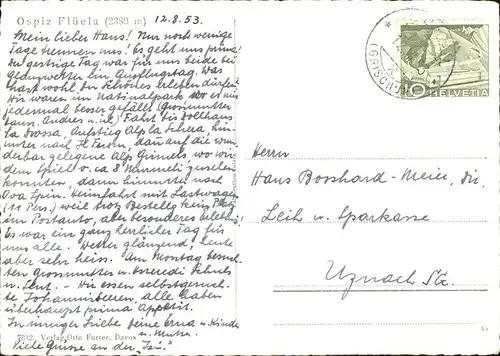 Ospiz Flüela (2389 m) 12.8.53.
Mein lieber Hans! Nur noch wenige
Tage trennen uns! Es geht uns prima!
Der gestrige Tag war für uns beide bei
ein Ausflugstag. Was
hast wohl Du Schönes erleben dürfen?
Wir waren im Nationalpark wo es mir
jedesmal besser gefällt (Grossmutter
Fahrt bis
La Drossa, Aufstieg Alp la Schera, hin-
unter nach Il Fuorn, dann auf die wun-
derbar gelegene Alp Grimels wo wir
dem Spiel v. ca 8 Murmeli zusehen
konnten, dann hinunter nach
Ova Spin. Heimfahrt mit Lastwagen
(11 Pers.) weil trotz Bestellg kein Platz
im Postauto, aber besonderes Erlebnis!
Es war ein ganz herrlicher Tag für
uns alle. Wetter glänzend, heute
aber sehr heiss. Am Montag besuch-
ten Grossmutter u. Schuls
u. Sent. - Wir essen selbstgesuch-
te Johannisbeeren, alle haben
überhaupt prima Appetit.
In inniger Liebe Deine Erna u. Kinder
u. Mutter.
Viele Grüsse an der
7812 Verlag Otto Furter, Davos
10
HELVETIA
Herrn
Hans Bosshard-Meier, Dir.
Leih u. Sparkasse
Uznach SG.